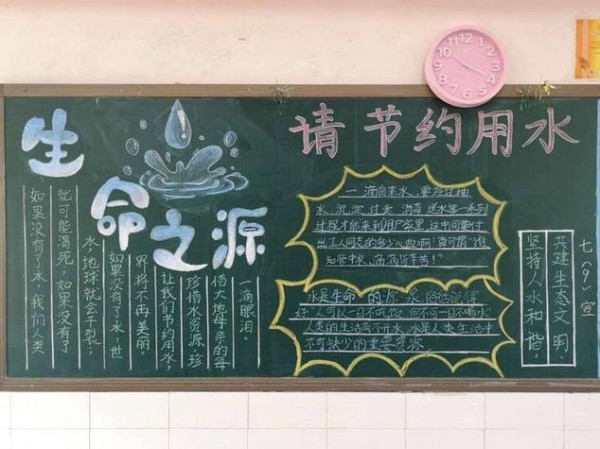 生命之源
如果没有了水，我们人类
就可能渴死，如果没有了
水，地球就会干裂，
如果没有了水，世
界将不再美丽。
让我们节约用水，
珍惜水资源，珍
惜大地母亲的每
一滴眼泪。
请节约用水
一滴自来水，要经过抽
水、沉淀、过 、消毒、送水等一系列
过程才能来到用户家里，这中间要付
出工人同志的多少心血啊！真可谓“谁
知管中水，滴滴皆辛苦！”
水是生命的源泉，俗话说得
好“人可以一日不吃饭，但不可一日不喝水”
人类的生活离不开水，水是人类生活中
不可缺少的重要资源
坚持人水和谐，
共建生态文明，
七（9）宣